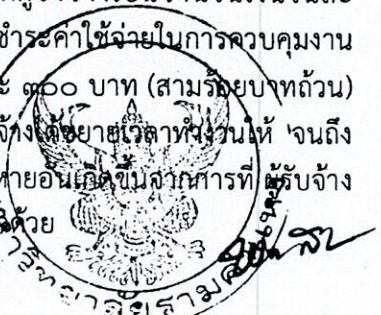 ชำระค่าใช้จ่ายในการควบคุมงาน
๓๐๐ บาท (สามร้อยบาทถ้วน)
จ้างได้ขยายเวลาทำงานให้ จนถึง
หายอันเกิดขึ้นจากการที่ ผู้รับจ้าง
ด้วย
วิทยาลัยรามคำแหง